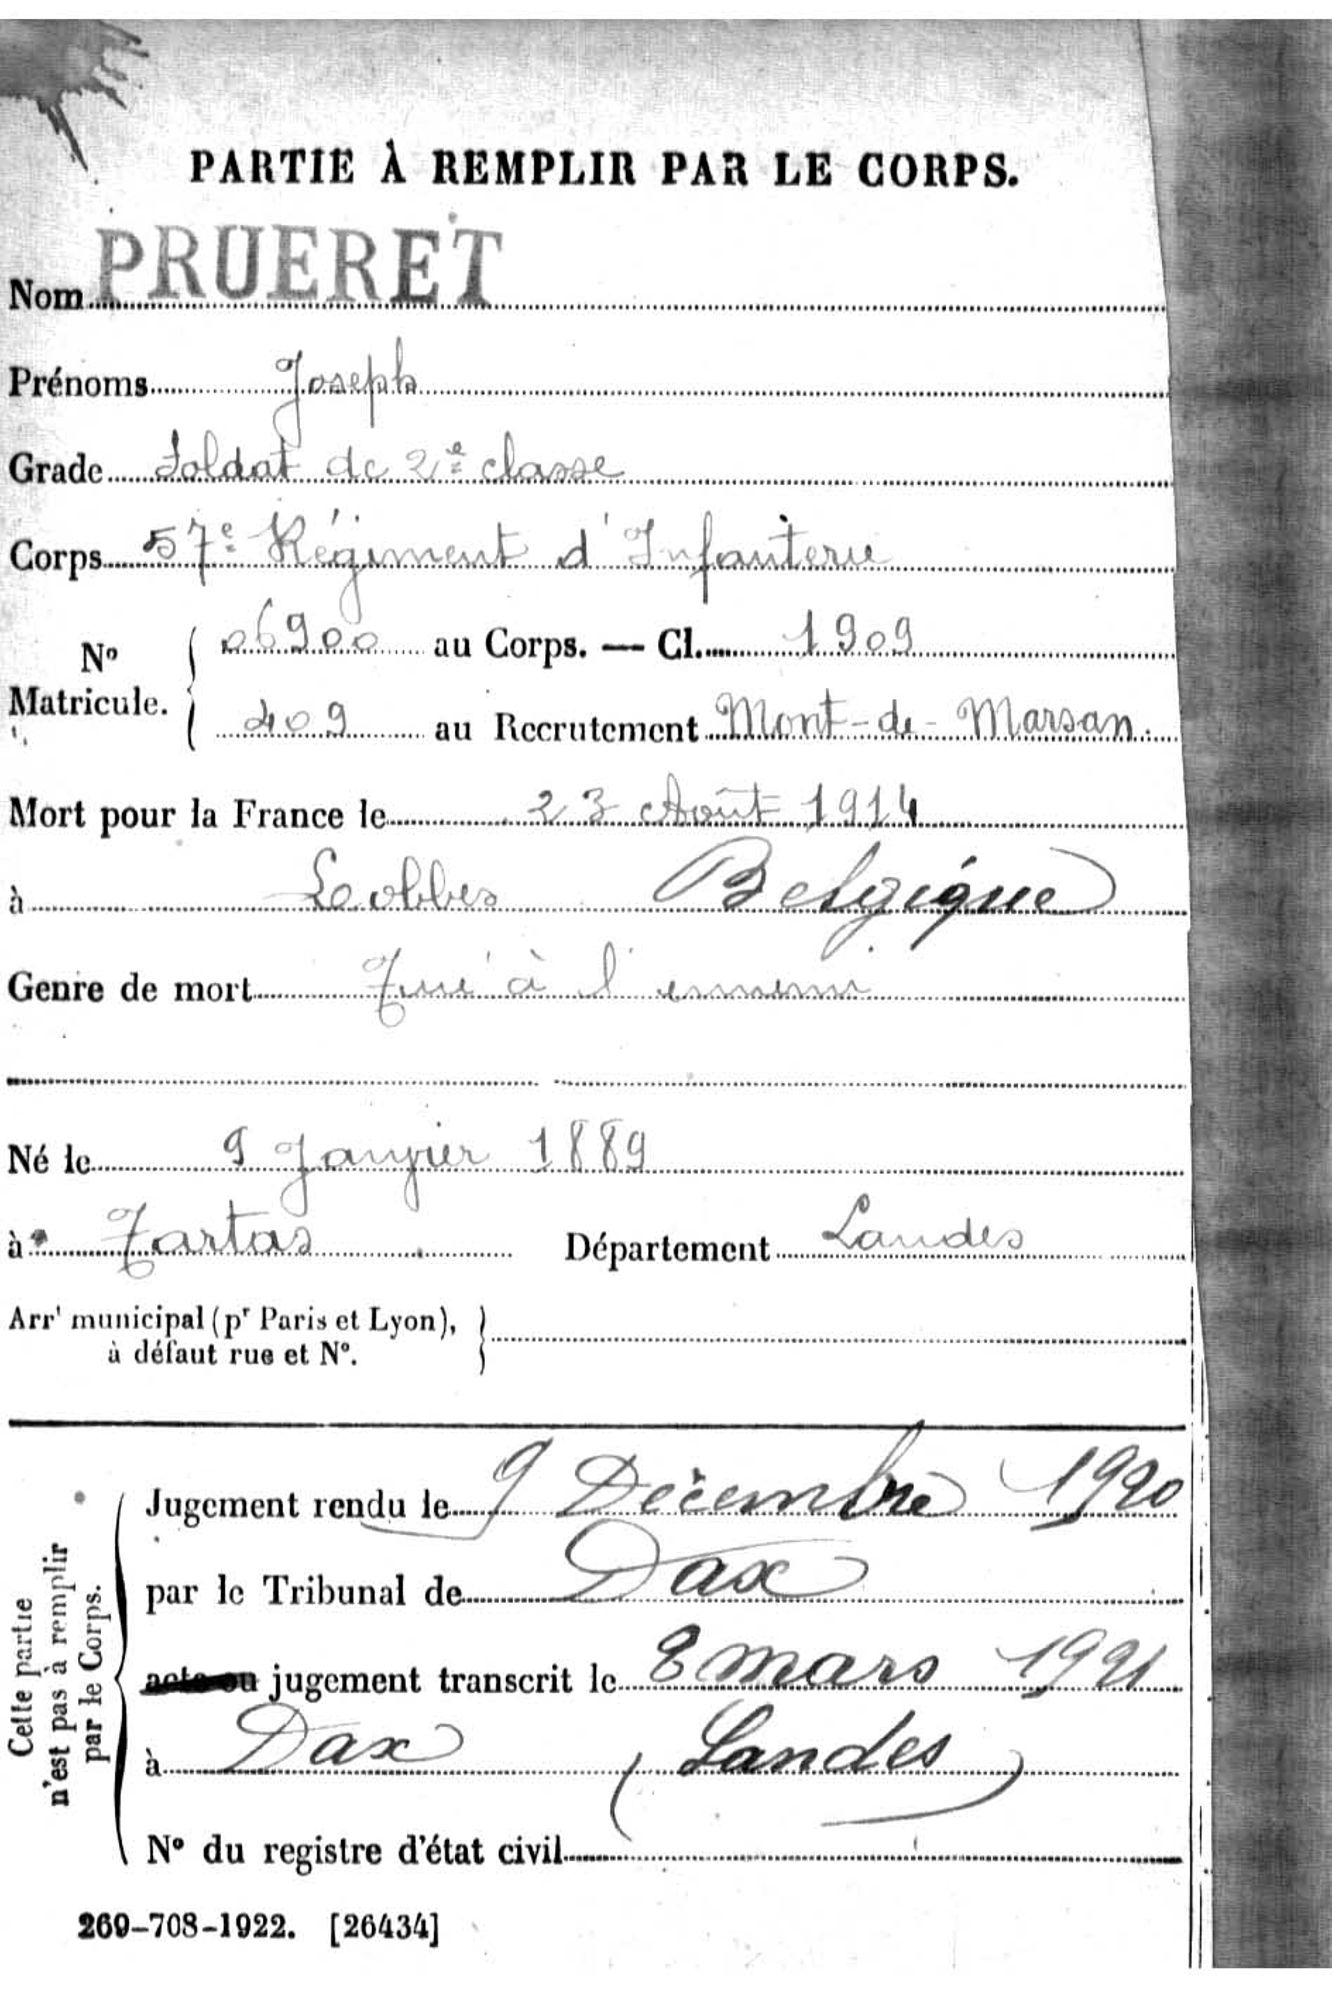 PARTIE À REMPLIR PAR LE CORPS.
Nom PRUERET
Prénoms Joseph
Grade Soldat de 2e classe
Corps 57e Régiment d'Infanterie
No Matricule. 06900 au Corps. — Cl. 1909
409 au Recrutement Mont-de-Marsan.
Mort pour la France le 23 Août 1914
à Lobbes Belgique
Genre de mort Tué à l'ennemi
Né le 9 Janvier 1889
à Tartas Département Landes
Arrt municipal (pr Paris et Lyon),
à défaut rue et No.
Cette partie
n'est pas à remplir
par le Corps.
Jugement rendu le 9 Décembre 1920
par le Tribunal de Dax
acte ou jugement transcrit le 8 mars 1921
à Dax (Landes)
No du registre d'état civil
269-708-1922. [26434]